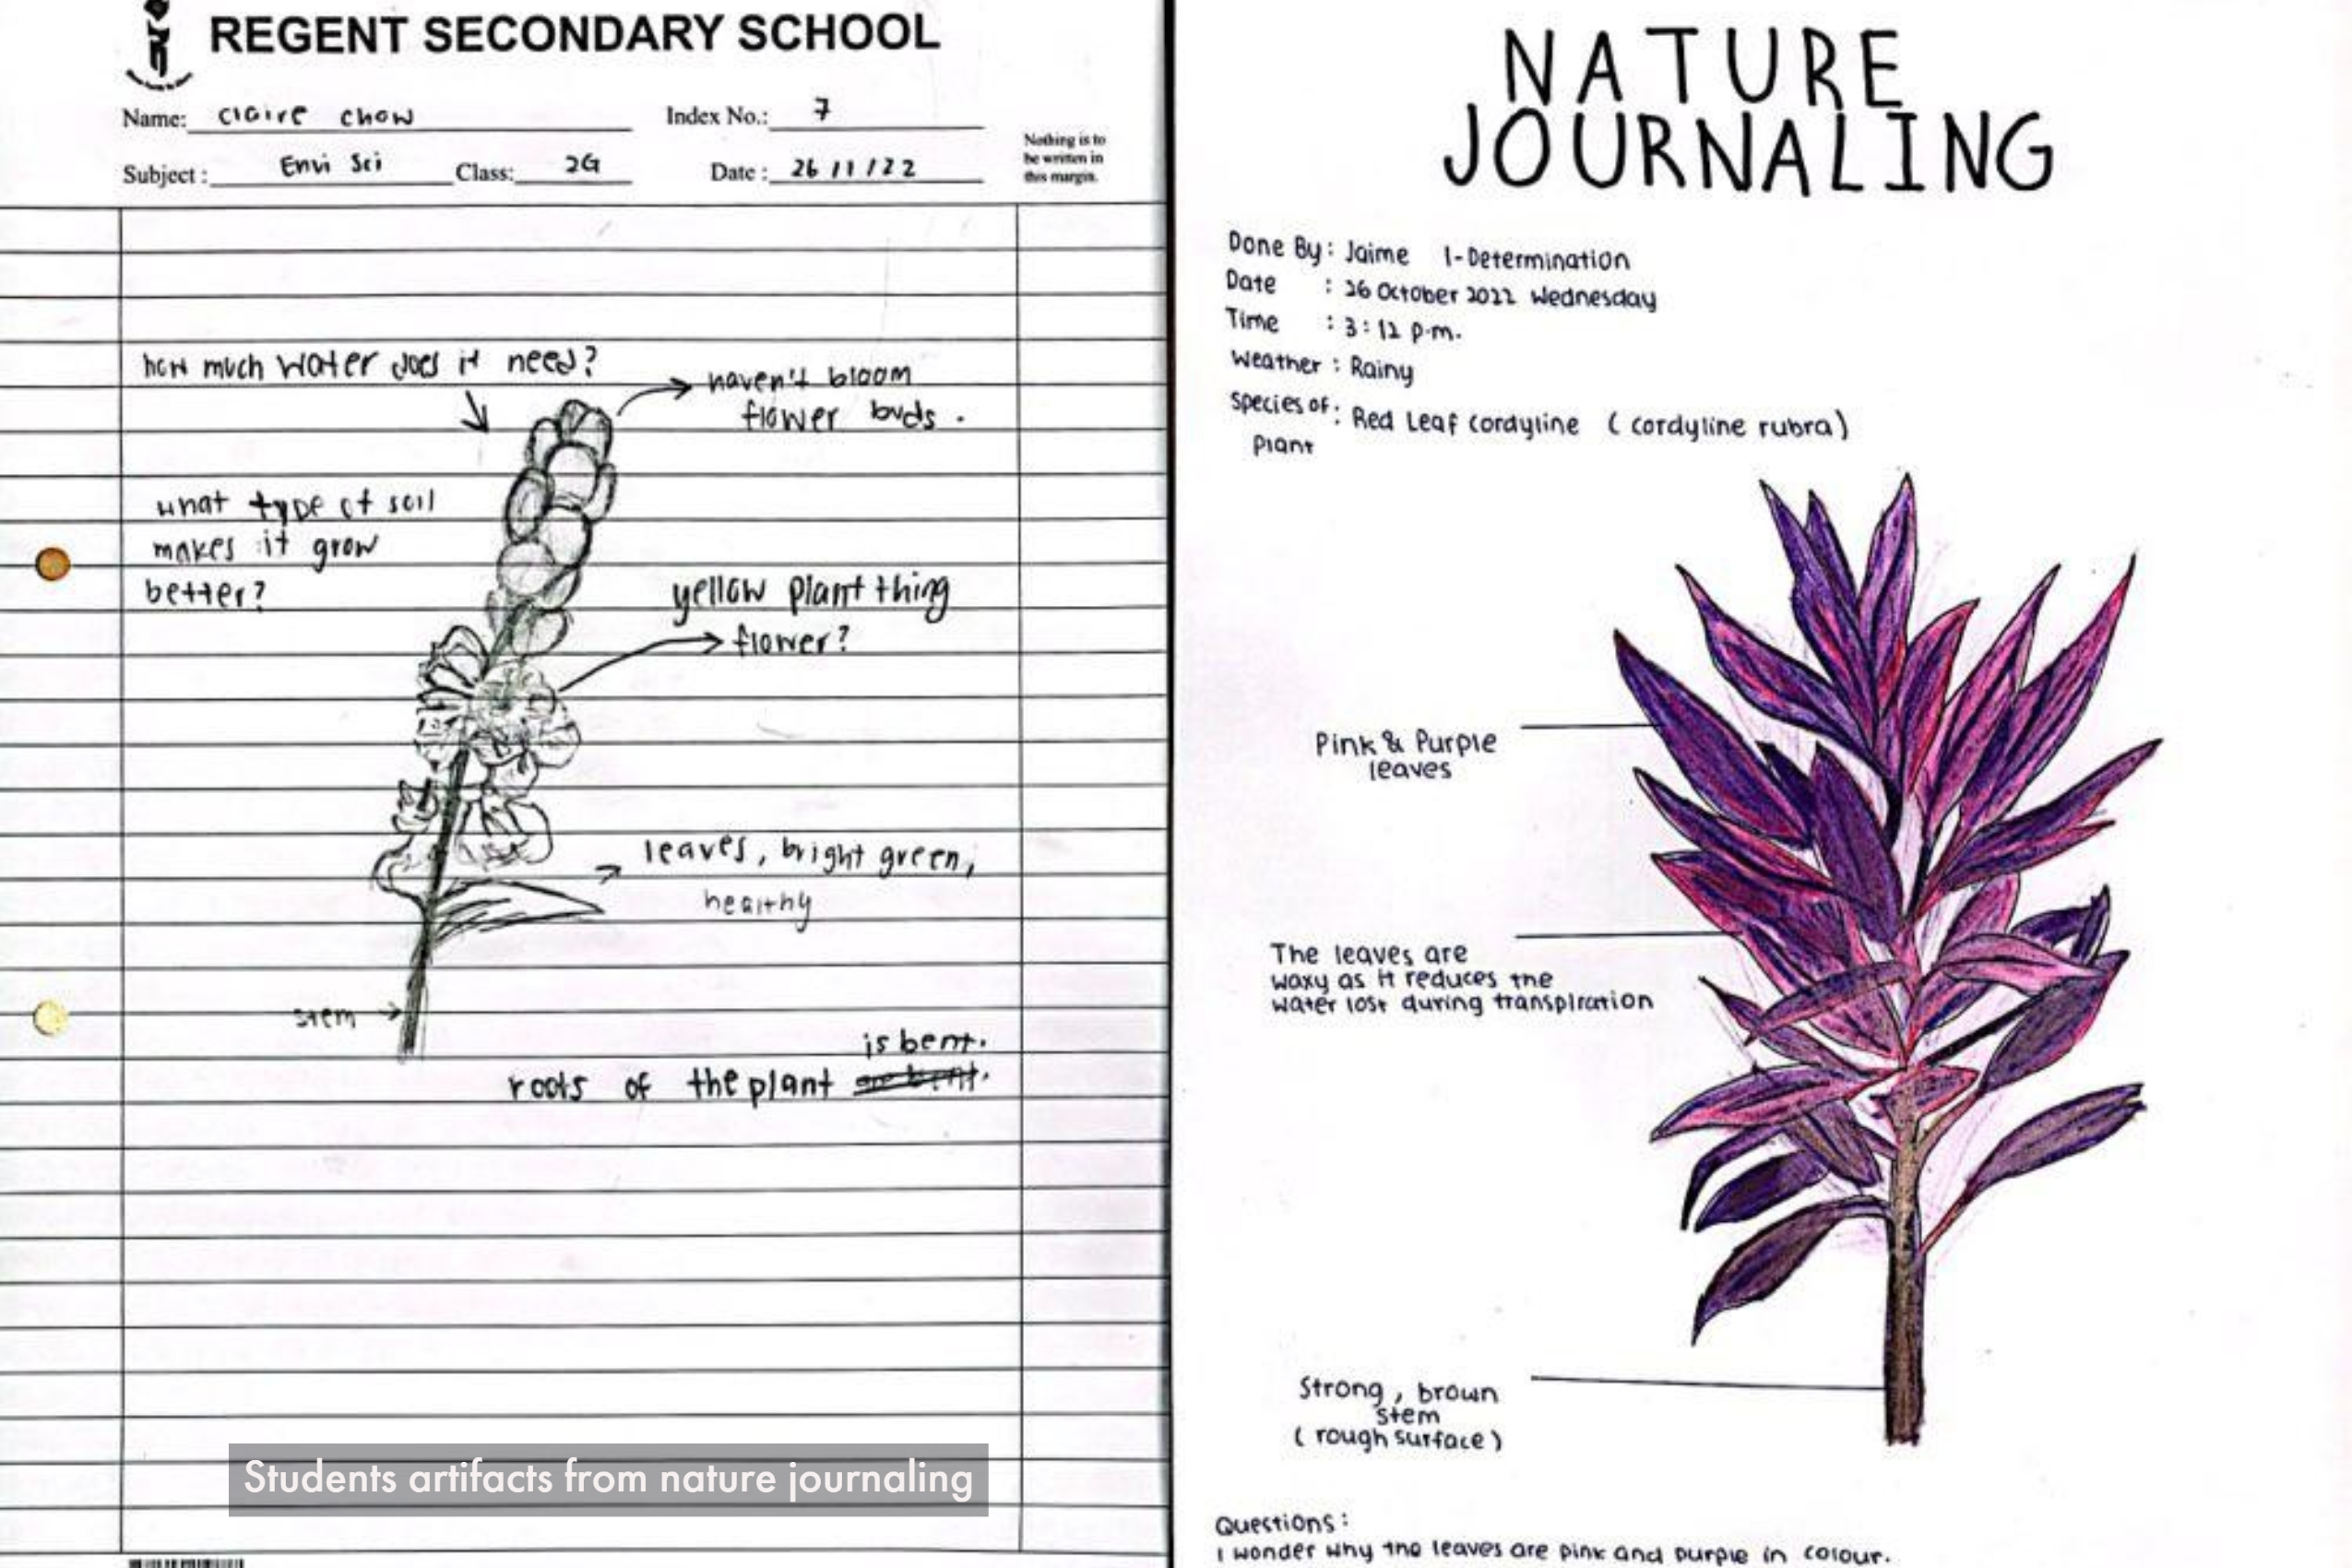 REGENT SECONDARY SCHOOL
Name: claire chow
Index No.: 7
Subject : Envi Sci Class: 2G Date : 26 / 1 / 22
Nothing is to
be written in
this margin.
how much water does it need?
haven't bloom
flower buds .
what type of soil
makes it grow
better?
yellow plant thing
flower?
leaves, bright green,
healthy
stem
is bent.
roots of the plant are bent.
Students artifacts from nature journaling
NATURE
JOURNALING
Done By : Jaime 1-Determination
Date : 26 October 2022 Wednesday
Time : 3:12 p.m.
Weather : Rainy
Species of : Red Leaf cordyline ( cordyline rubra )
Plant
Pink & Purple
leaves
The leaves are
waxy as it reduces the
water lost during transpiration
Strong , brown
stem
( rough surface )
Questions :
I wonder why the leaves are pink and purple in colour.